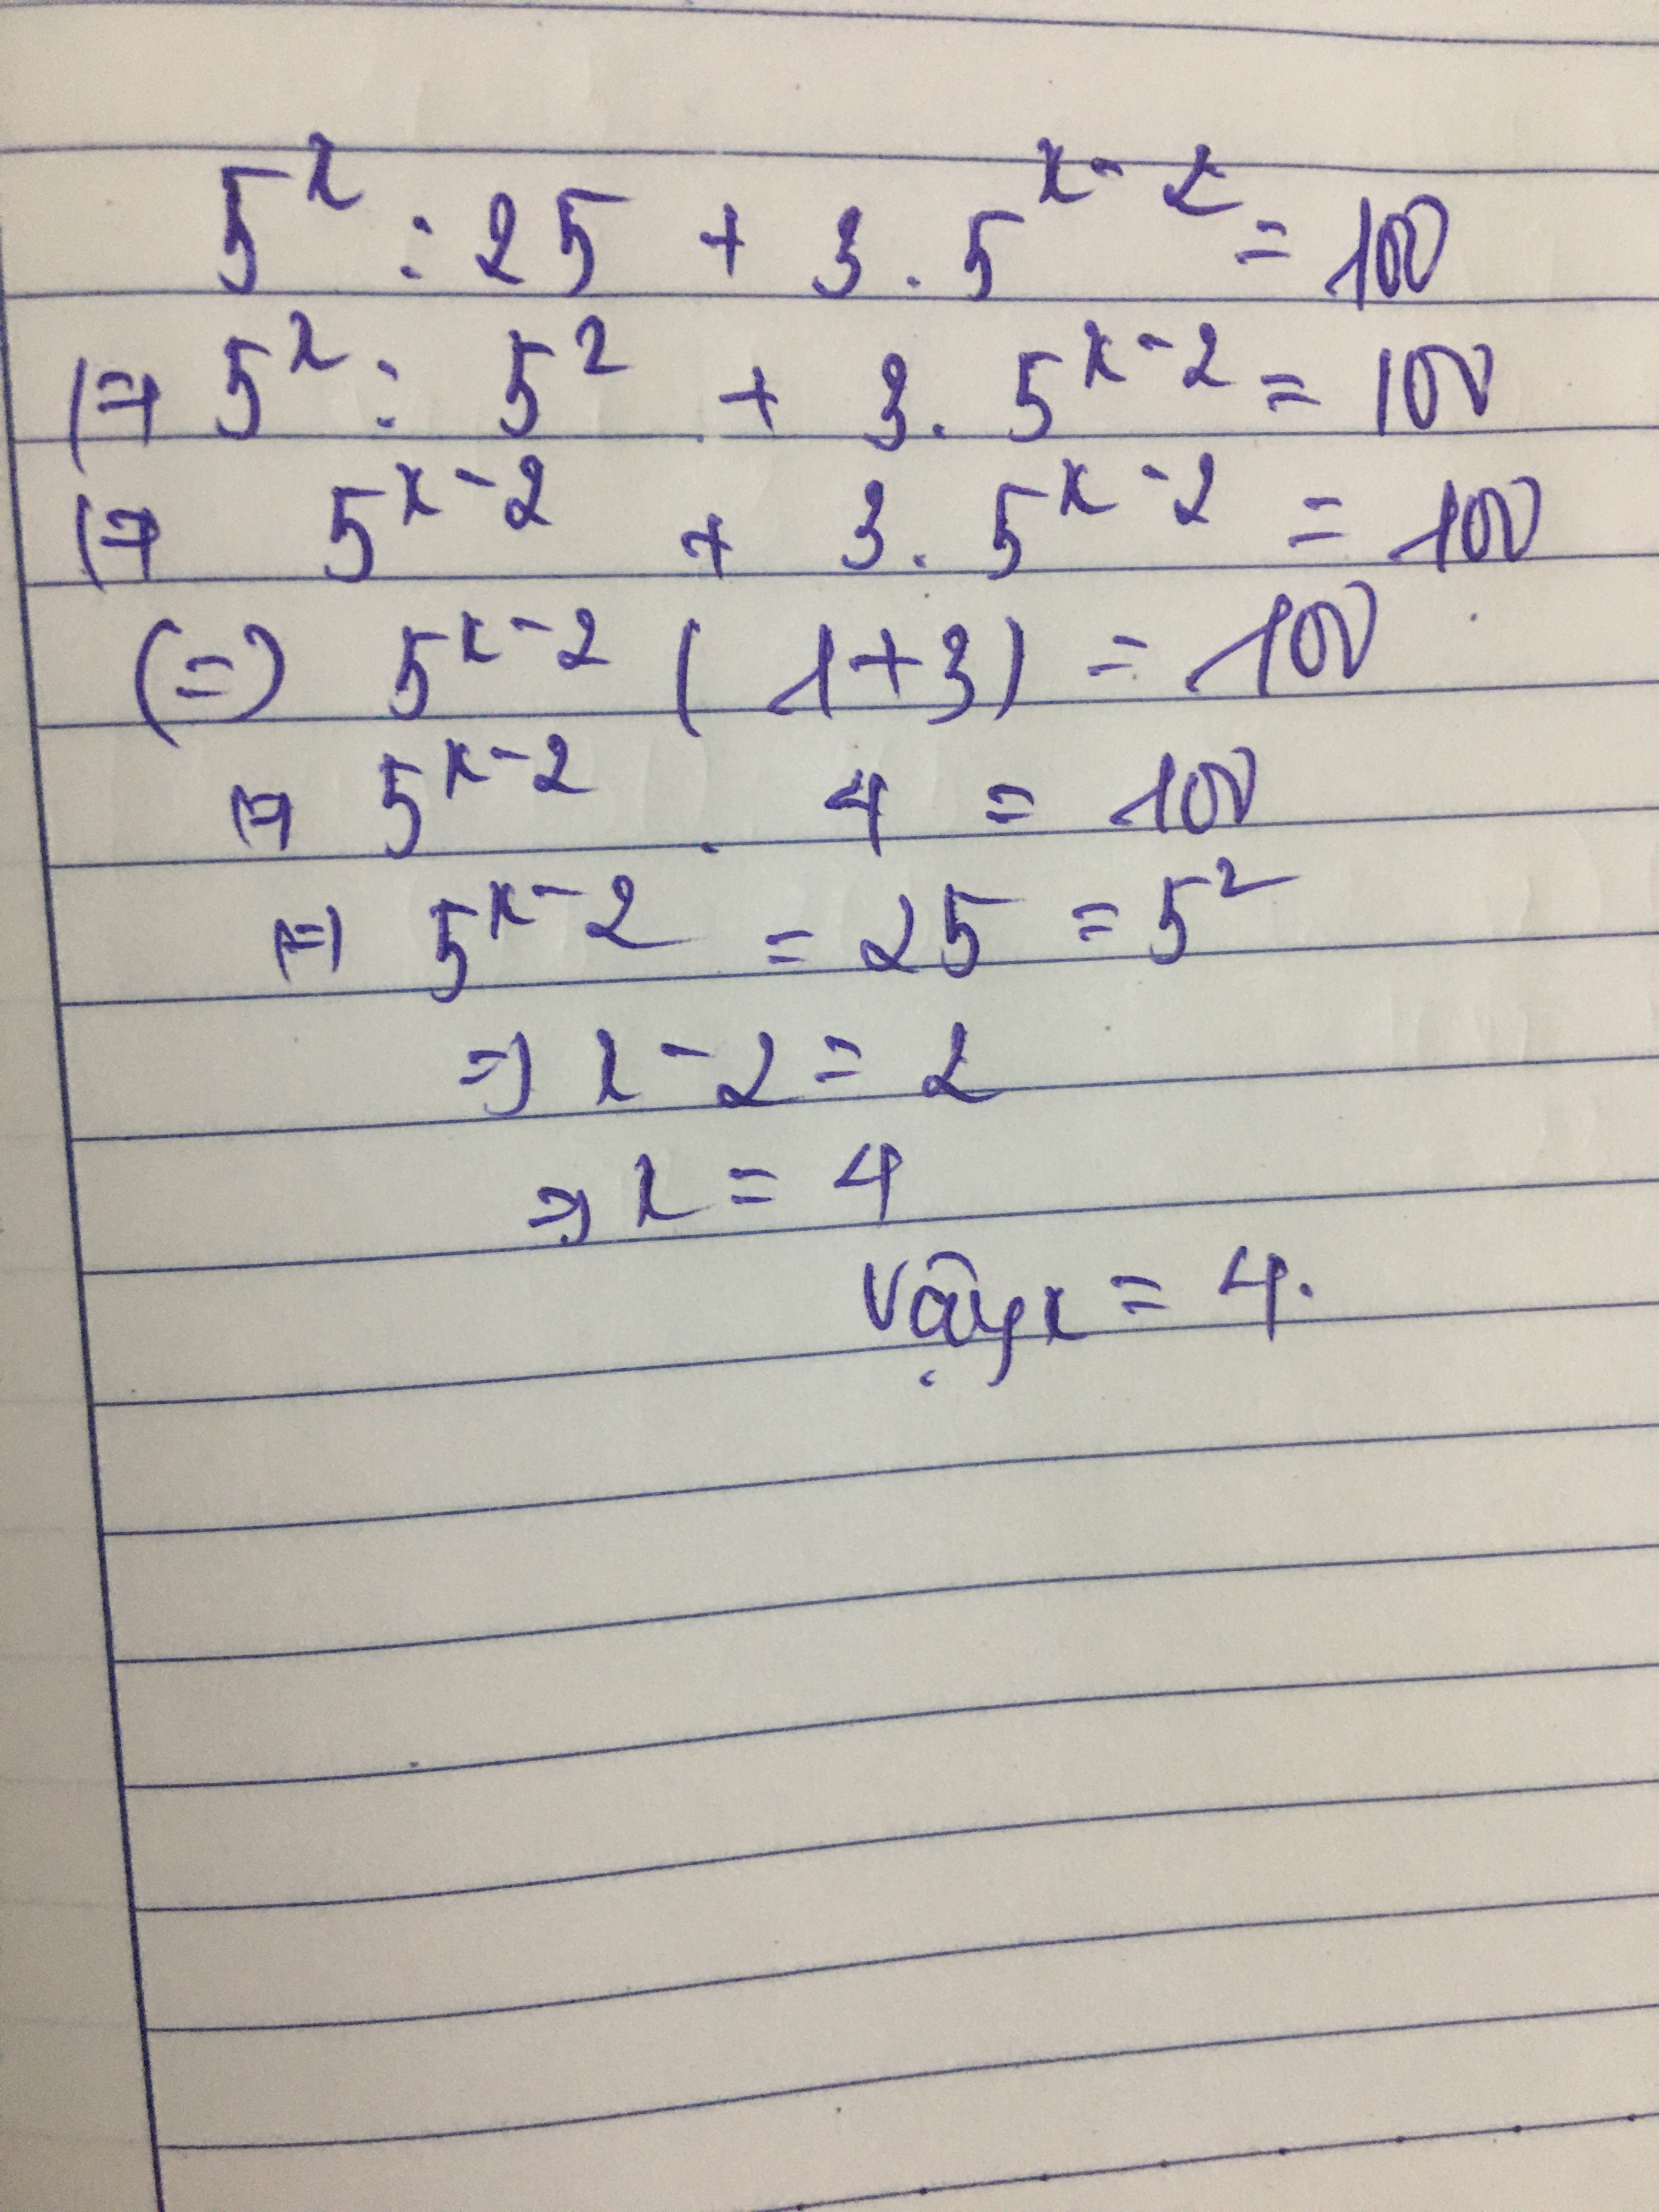 5^x : 25 + 3 . 5^{x-2} = 100
(=) 5^x : 5^2 + 3 . 5^{x-2} = 100
(=) 5^{x-2} + 3 . 5^{x-2} = 100
(=) 5^{x-2} ( 1+3 ) = 100
(=) 5^{x-2} . 4 = 100
(=) 5^{x-2} = 25 = 5^2
=) x - 2 = 2
=) x = 4
Vậy x = 4.